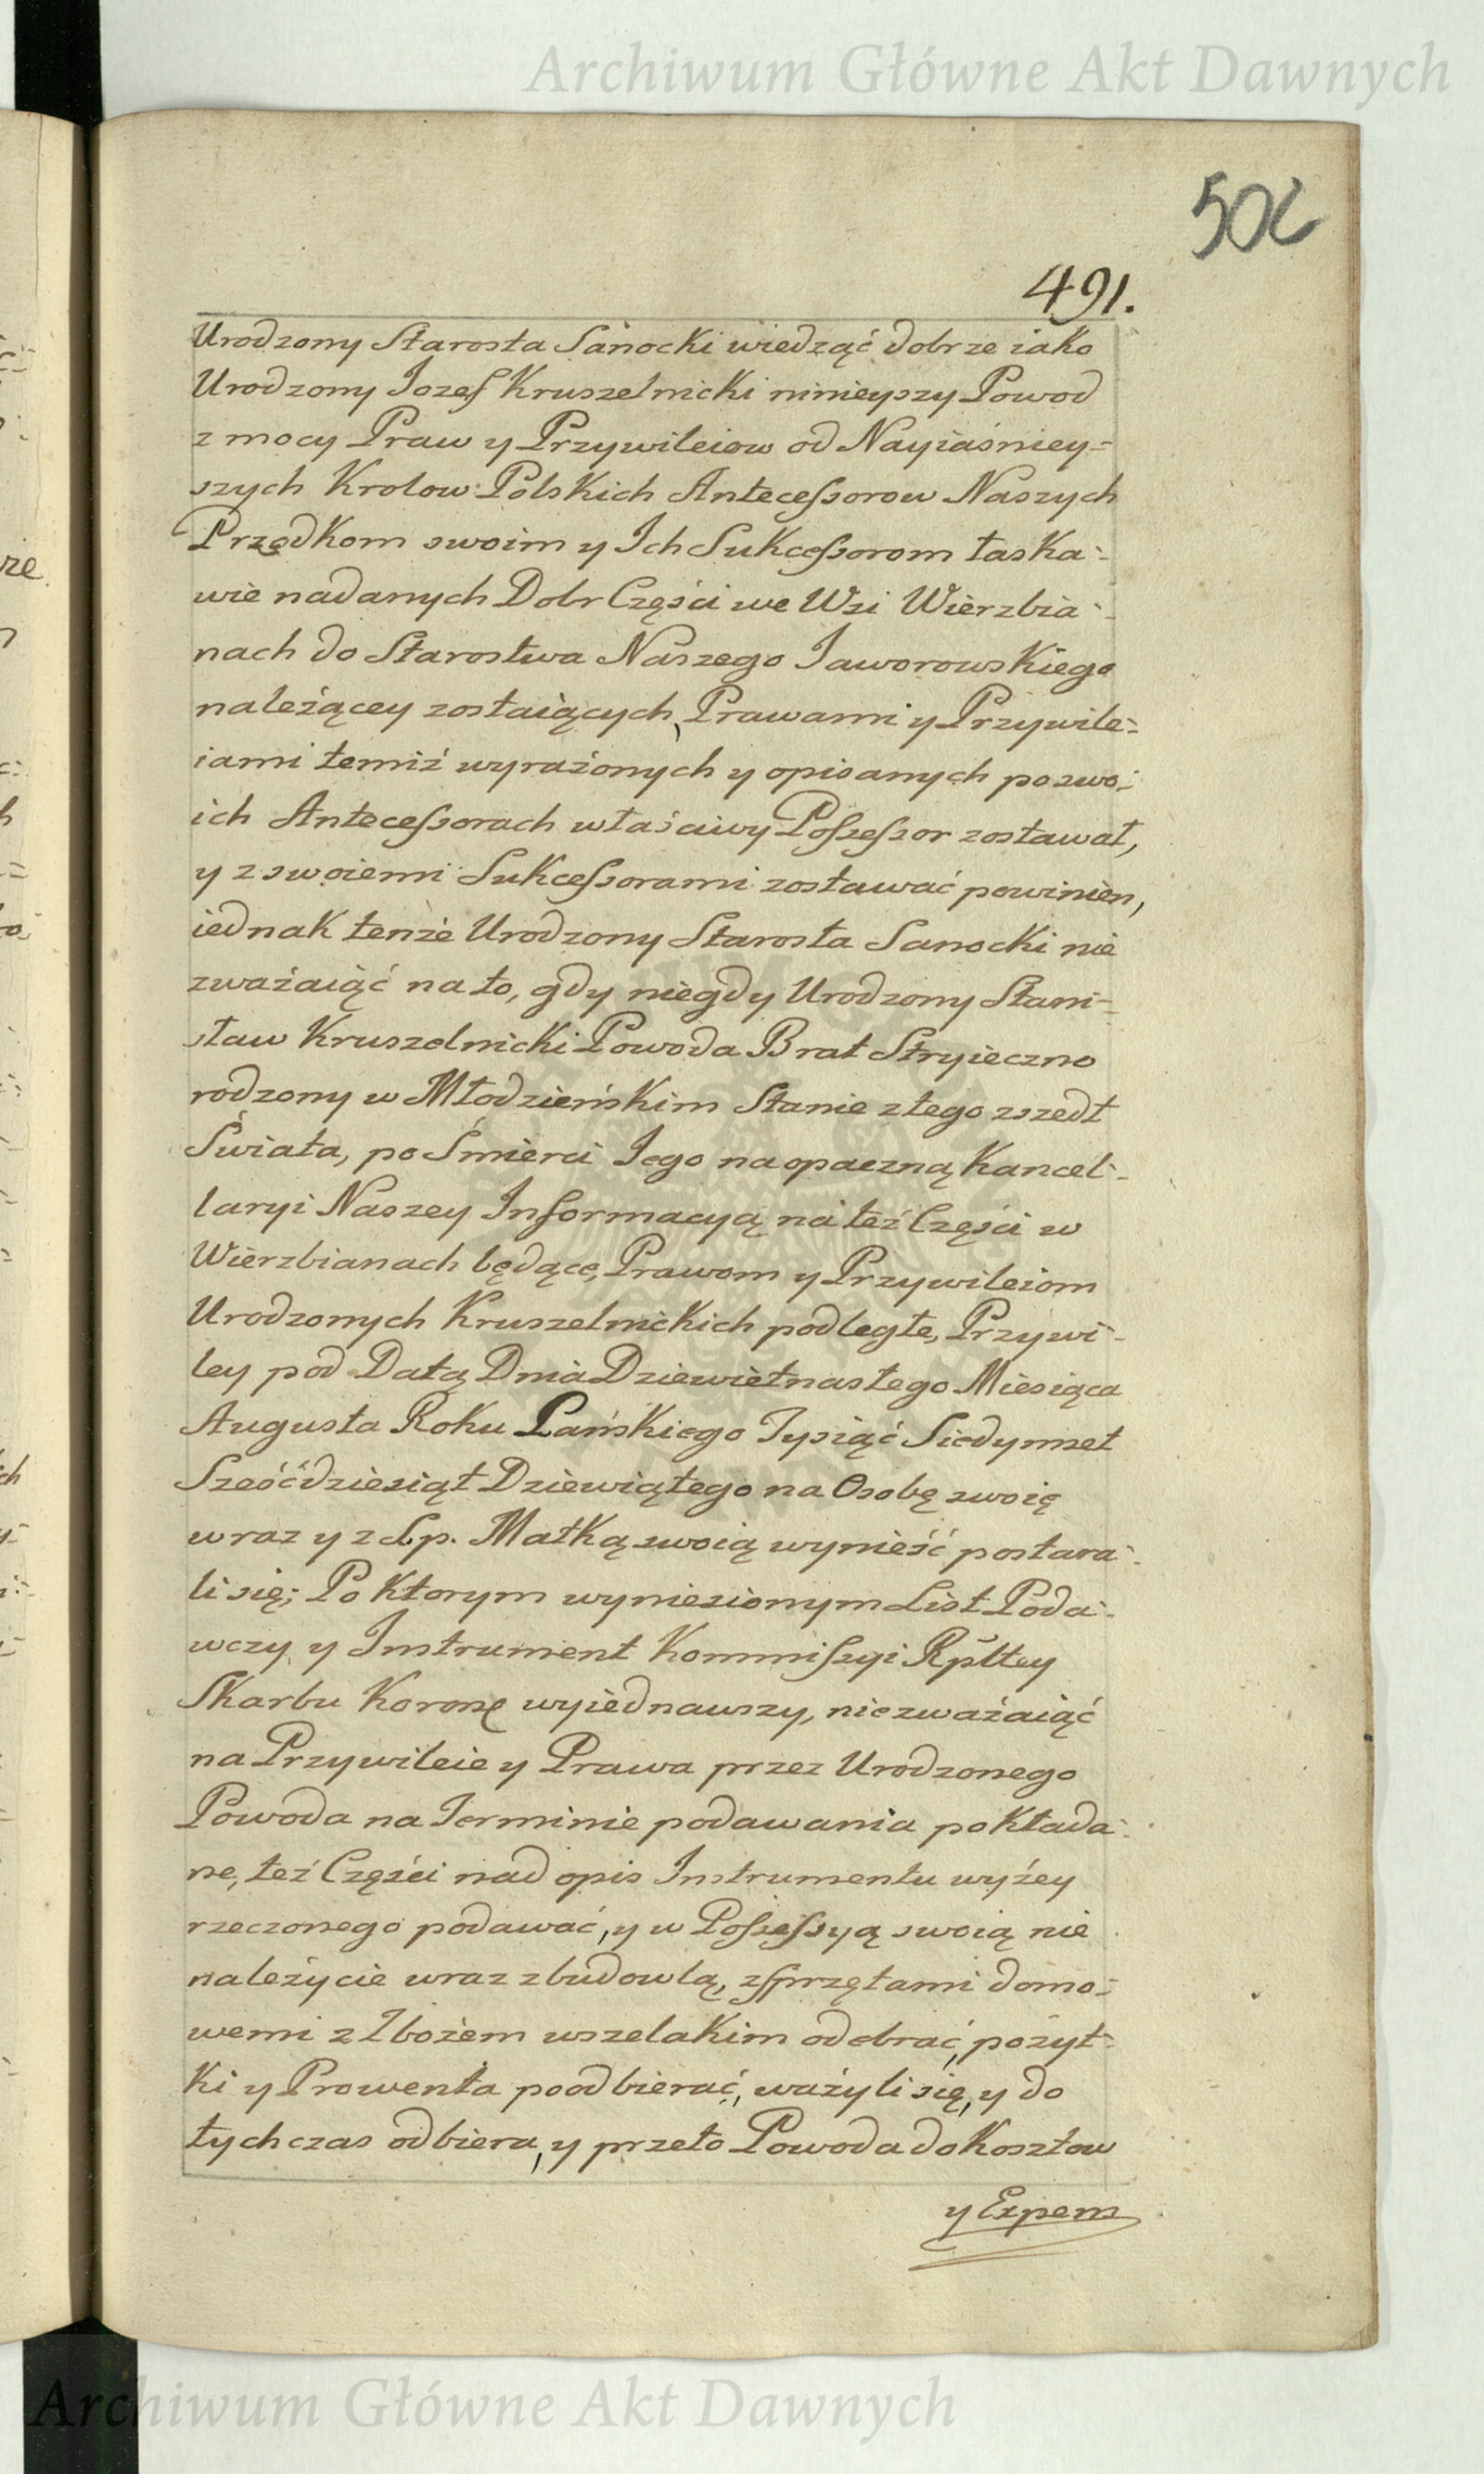 Archiwum Główne Akt Dawnych
506
491.
Urodzony Starosta Sanocki wiedząć dobrze iako
Urodzony Jozef Kruszelnicki ninieyszy Powod
z mocy Praw y Przywileiow od Nayiaśniey=
szych Krolow Polskich Antecessorow Naszych
Przodkom swoim y Ich Sukcessorom łaska=
wie nadanych Dobr Części we Wsi Wierzbia=
nach do Starostwa Naszego Jaworowskiego
należącey zostaiących, Prawami y Przywile=
iami temiż wyrażonych y opisanych po swo=
ich Antecessorach właściwy Possessor zostawał,
y z swoiemi Sukcessorami zostawać powinien,
iednak tenże Urodzony Starosta Sanocki nie
zważaiąć na to, gdy niegdy Urodzony Stani=
sław Kruszelnicki Powoda Brat Stryieczno
rodzony w Młodzieńskim Stanie z tego zszedł
Świata, po Śmierci Jego na opaczną Kancel=
laryi Naszey Informacyą na też Części w
Wierzbianach będące, Prawom y Przywileiom
Urodzonych Kruszelnickich podległe, Przywi=
ley pod Datą Dnia Dziewiętnastego Miesiąca
Augusta Roku Pańskiego Tysiąć Siedymset
Sześćdziesiąt Dziewiątego na Osobę swoię
wraz y z Sp. Matką swoią wynieść postara=
li się; Po ktorym wyniesionym List Poda=
wczy y Instrument Kommissyi Rpltey
Skarbu Koron wyiednawszy, nie zważaiąć
na Przywileie y Prawa przez Urodzonego
Powoda na Terminie podawania pokłada=
ne, też Części nad opis Instrumentu wyżey
rzeczonego podawać, y w Possessyą swoią nie
należycie wraz z budowlą, z sprzętami domo=
wemi z Zbożem wszelakim odebrać, pożyt=
ki y Prowenta poodbierać, ważyli się, y do
tych czas odbiera, y przeto Powoda do Kosztow
y Expens
Archiwum Główne Akt Dawnych